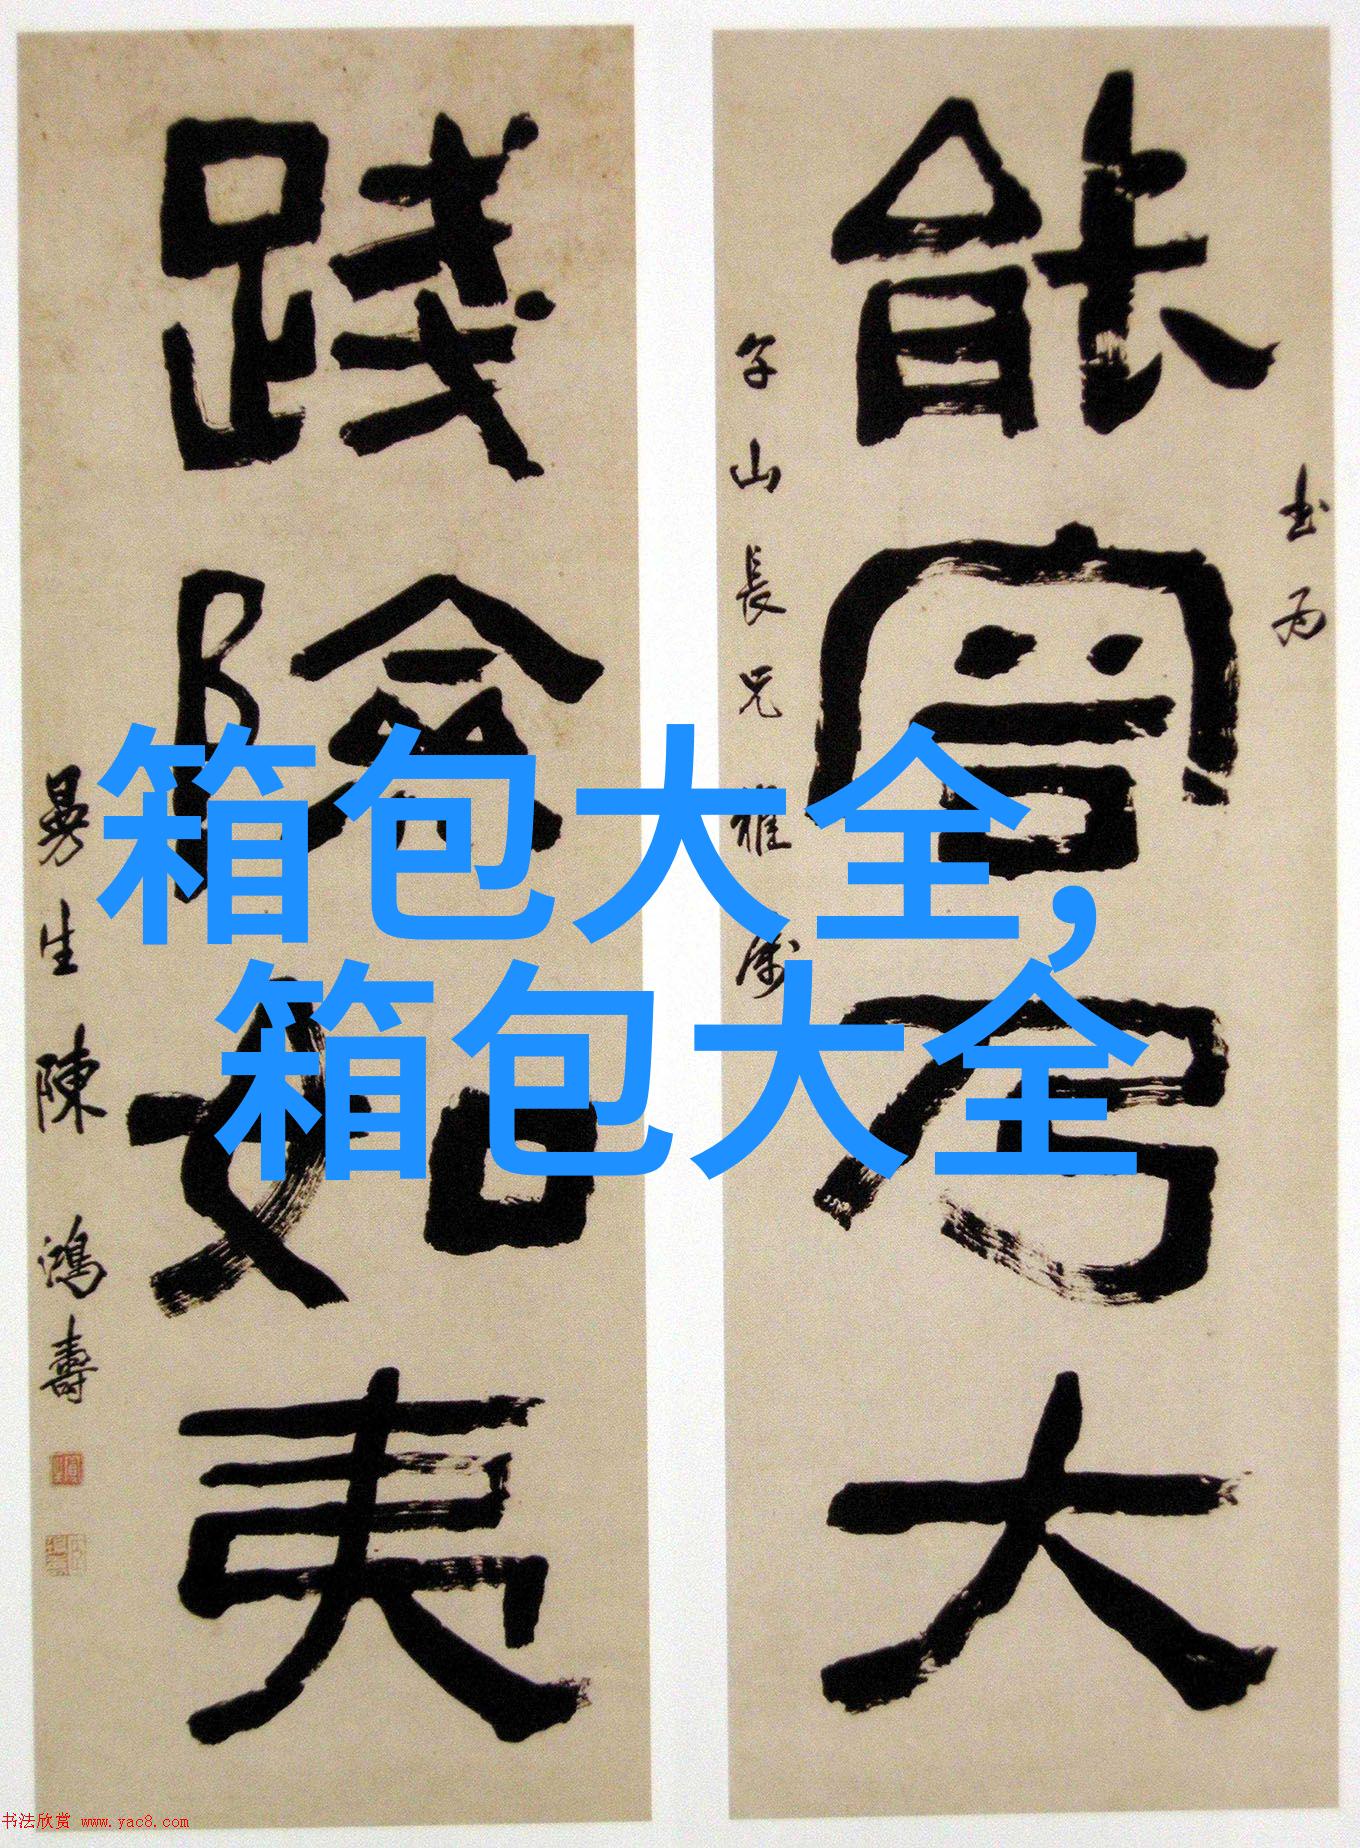 箱包大全,
箱包大全
能容乃大
山長兄雅
踐險如夷
曼生陳鴻壽
书法欣赏 www.yac8.com